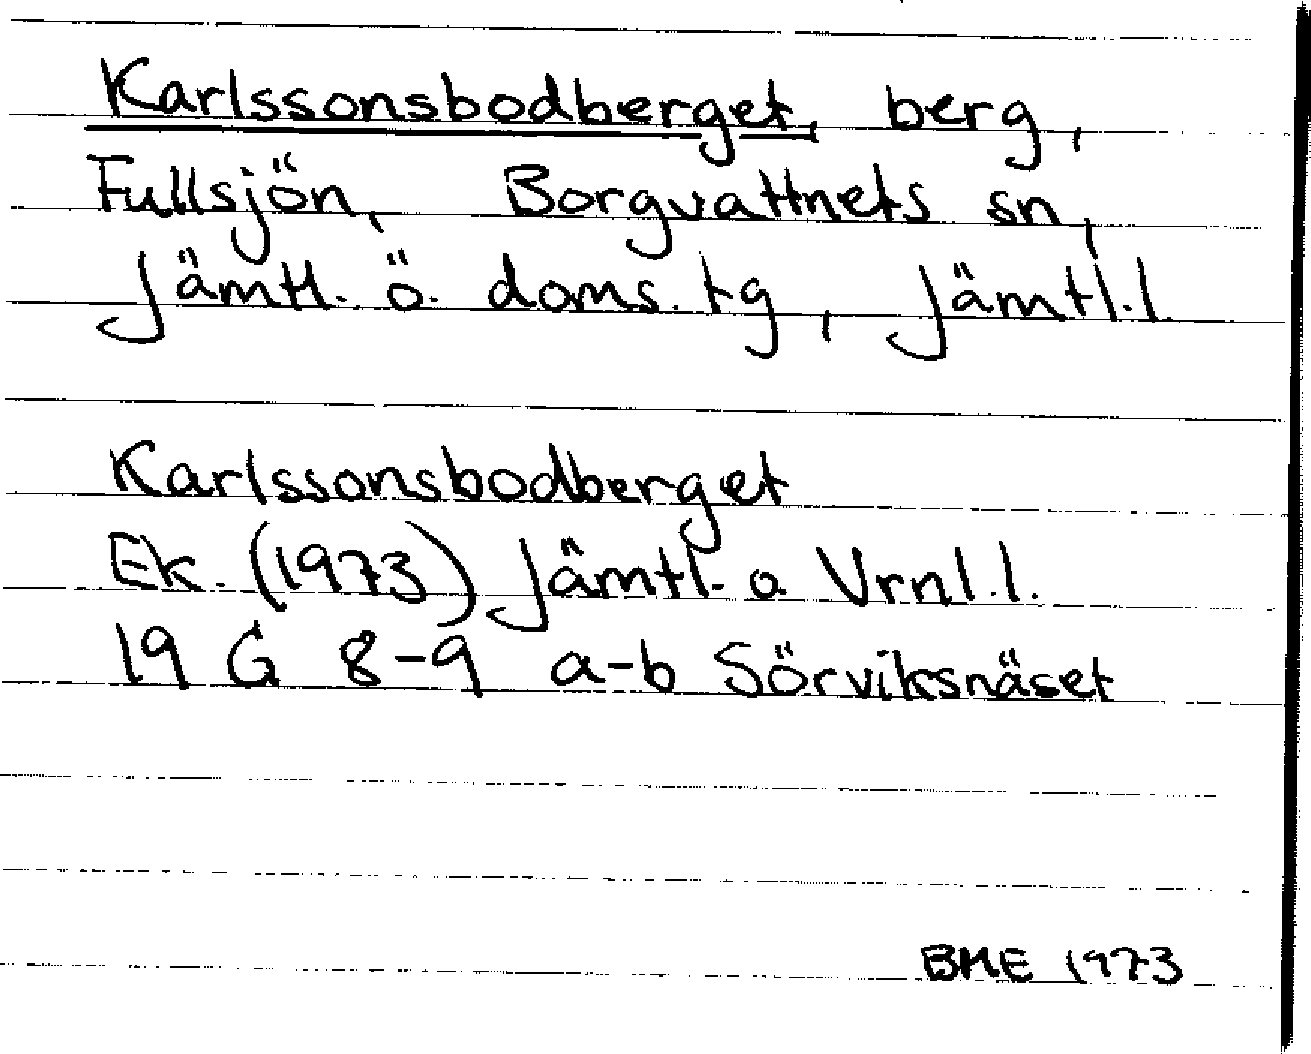 Karlssonsbodberget, berg,
Fullsjön, Borgvattnets sn,
Jämtl. ö. doms. tg, Jämtl. l
Karlssonsbodberget
Ek. (1973) Jämtl. o Vrnl. l.
19 G 8-9 a-b Sörviksnäset
BME 1973